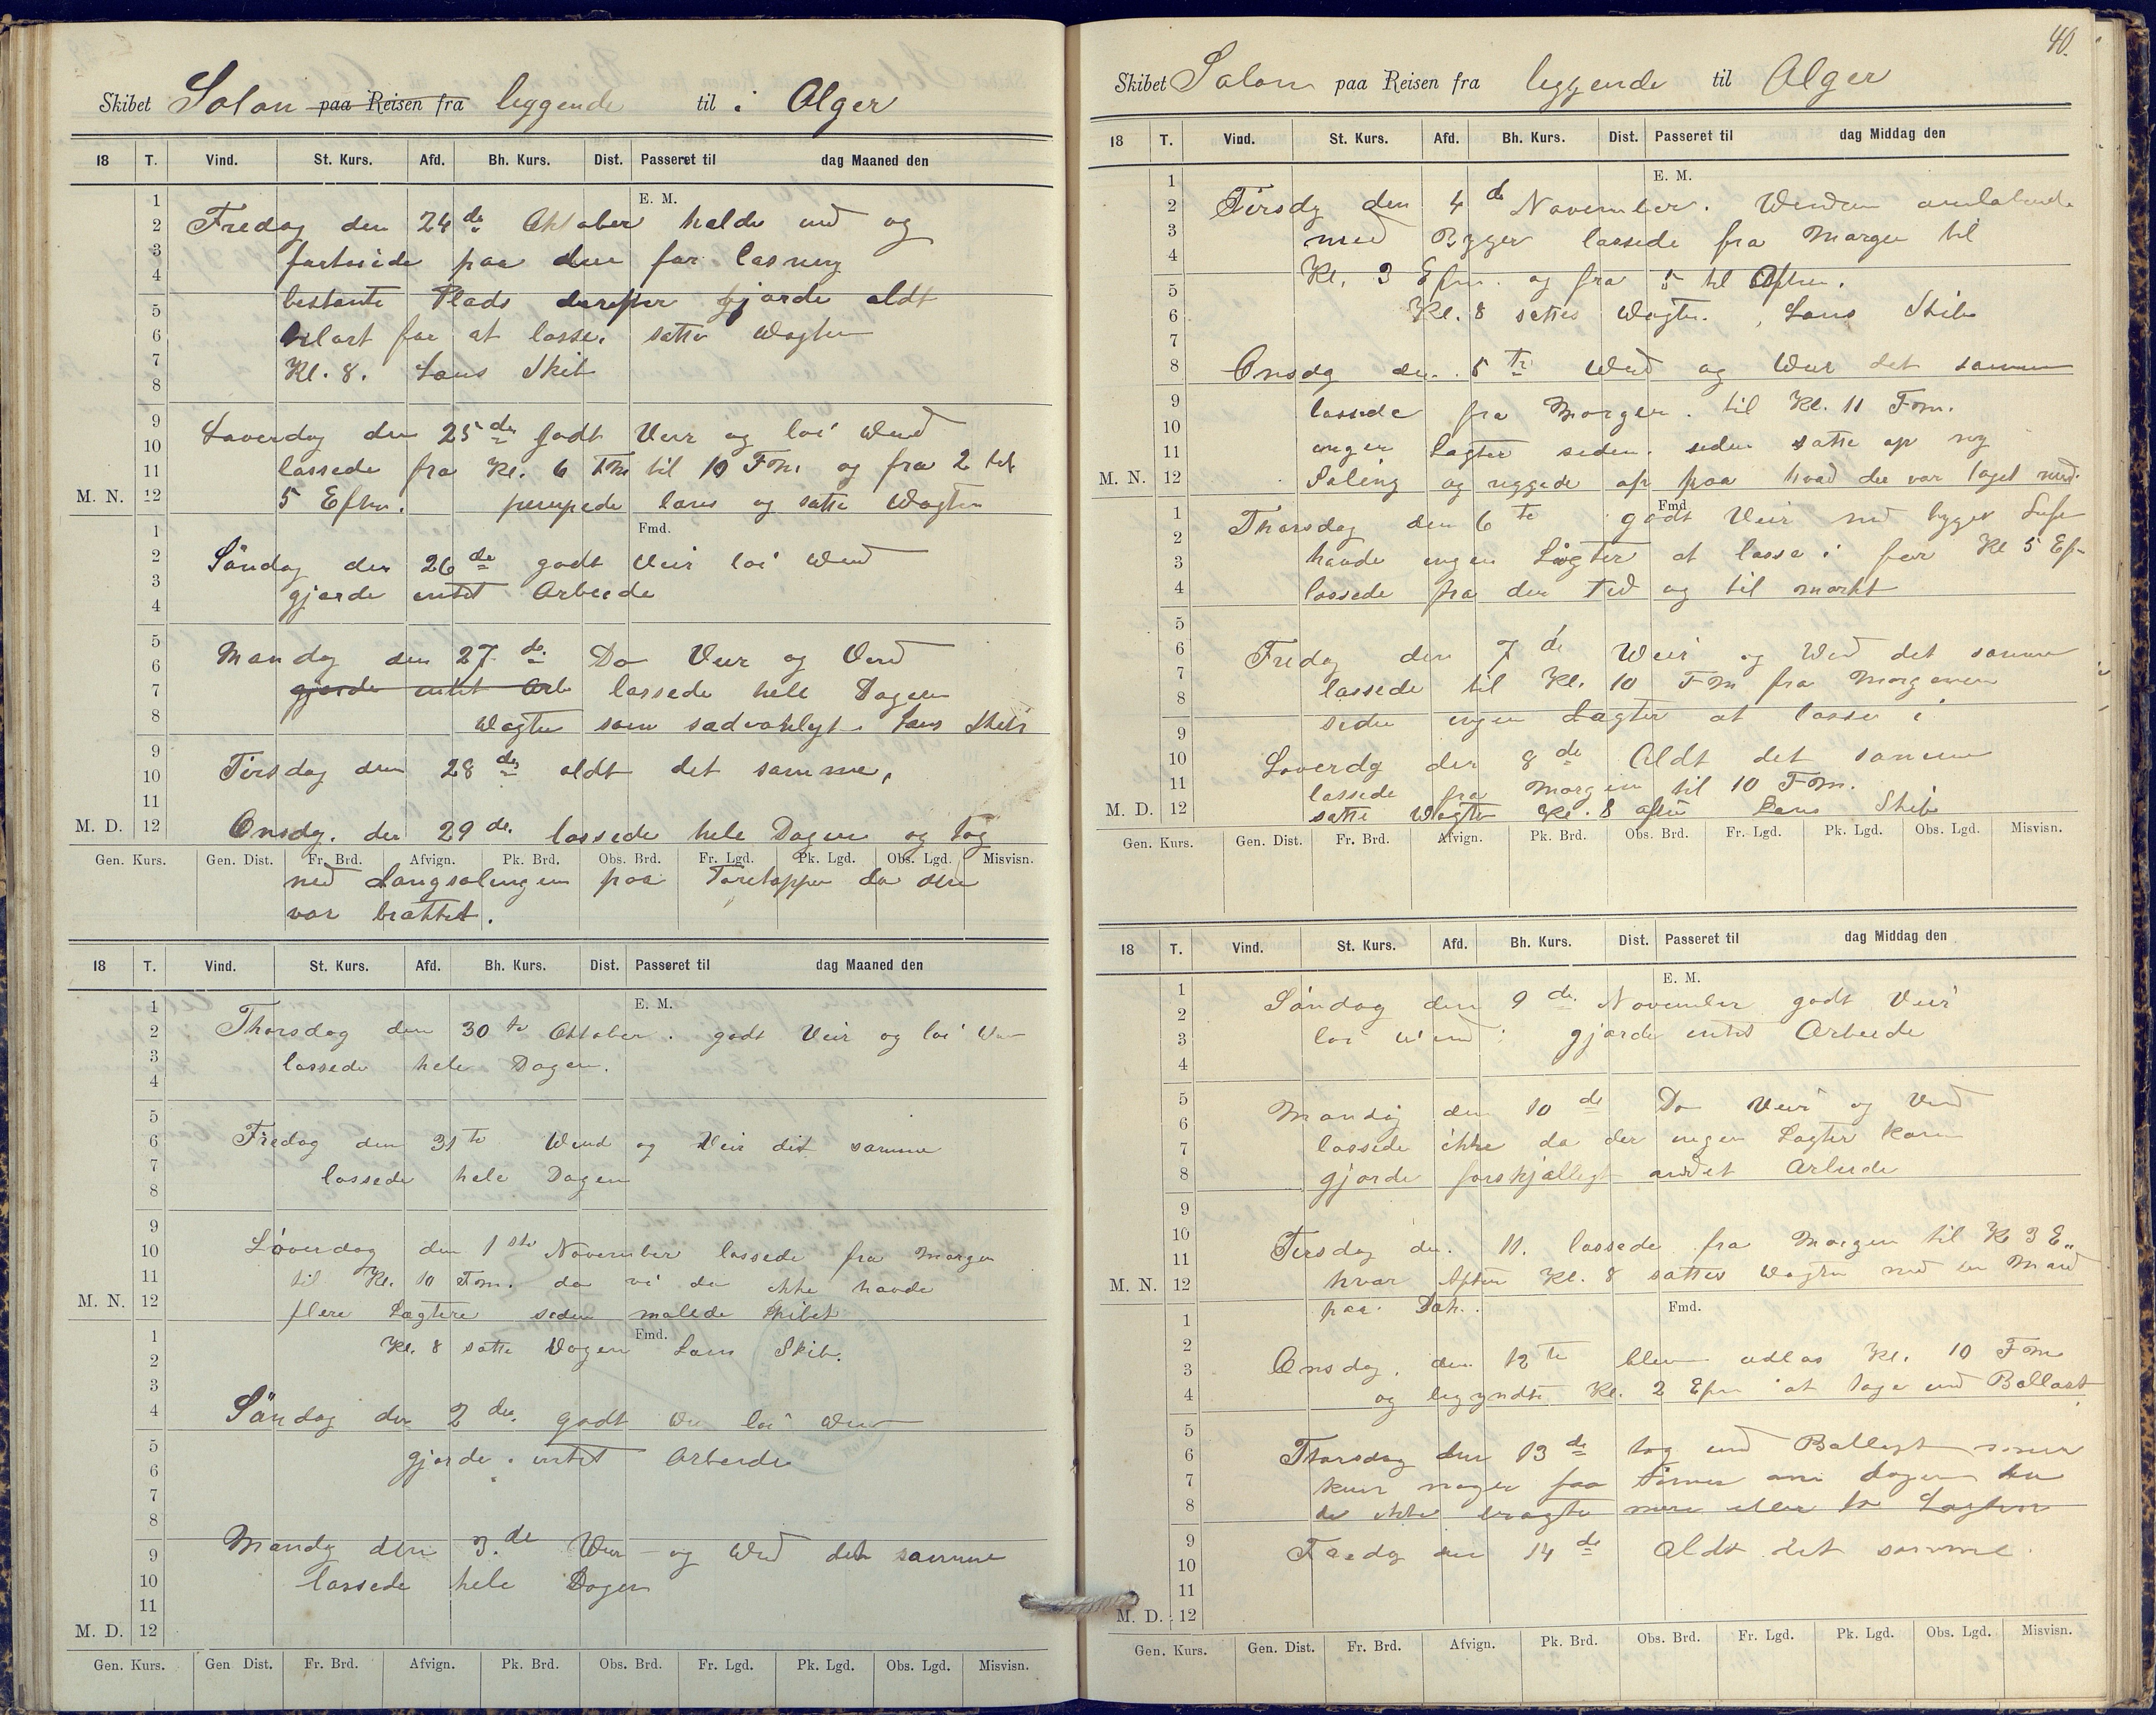 Skibet Solon paa Reisen fra leggende til i Alger
18 T. Vind. St. Kurs. Afd. Bh. Kurs. Dist. Passeret til dag Maaned den
E. M.
Fredag den 24de Oktober halde ind og
fortoiede paa den for losning
bestamte Plads derefter gjorde aldt
klart for at losse. satte Wagten
Kl. 8. Læns Skib
Loverdag den 25de godt Veir og loi Wind
lossede fra Kl. 6 Fm til 10 Fm og fra 2 til
M. N. 5 Efm. pumpede læns og satte Wagten
Fmd.
Söndag den 26de godt Veir loi Wind
gjorde intet Arbeide
Mandag den 27de Do Veir og Vind
gjorde intet Arb lossede hele Dagen
Wagten som sædvanligt. Læns Skib
Tirsdag den 28de aldt det samme,
M. D. Onsdg. den 29de. lossede hele Dagen og tog
Gen. Kurs. Gen. Dist. Fr. Brd. Afvign. Pk. Brd. Obs. Brd. Fr. Lgd. Pk. Lgd. Obs. Lgd. Misvisn.
ned Langsalingen paa Foretoppen da den
var brækket.
18 T. Vind. St. Kurs. Afd. Bh. Kurs. Dist. Passeret til dag Maaned den
E. M.
Thorsdag den 30te Oktober. godt Veir og loi
lossede hele Dagen.
Fredag den 31te Wind og Veir det samme
lossede hele Dagen
Löverdag den 1ste November lossede fra Morgen
til Kl. 10 Fm. da vi da ikke havde
M. N. flere Lægtere siden malede Skibet
Fmd.
Kl. 8 satte Vagen Læns Skib.
Söndag den 2de. godt loi
gjorde intet Arbeide
Mandg den 3.de og Wind det samme
lossede hele Dagen
M. D.
Gen. Kurs. Gen Dist. Fr. Brd. Afvign. Pk. Brd. Obs. Brd. Fr. Lgd. Pk. Lgd. Obs. Lgd. Misvisn.
40.
Skibet Solon paa Reisen fra leggende til Alger
18 T. Vind. St. Kurs. Afd. Bh. Kurs. Dist. Passeret til dag Middag den
E. M.
Tirsdg den 4de November. Winden omlobende
med Bygger lossede fra Morgen til
Kl. 3 Efm. og fra 5 til Aften.
Kl. 8 sattes Wagten. Læns Skib
Onsdg den 5te Wind og Weir det samme
lossede fra Morgen. til Kl. 11 Fm.
ingen Lægter siden. siden satte op ny
M. N. Saling og riggede op paa hvad der var taget ned.
Fmd
Thorsdag den 6te godt Veir med bygger Luft
havde ingen Lægter at losse i før Kl 5 Ef
lossede fra den Tid og til morkt
Fredag den 7de Weir og Wind det samme
lossede til Kl. 10 Fm fra Morgenen
siden ingen Lægter at losse i
Loverdg den 8de Aldt det samme
lossede fra Morgen til 10 Fm.
M. D. satte Wagten Kl. 8 aften Læns Skib
Gen. Kurs. Gen. Dist. Fr. Brd. Afvign. Pk. Brd. Obs. Brd. Fr. Lgd. Pk. Lgd. Obs. Lgd. Misvisn.
18 T. Vind. St. Kurs. Afd. Bh. Kurs. Dist. Passeret til dag Middag den
E. M.
Söndag den 9de. November godt Veir
loi Wind gjorde intet Arbeide
Mandag den 10de Do Veir og Vind
lossede ikke da der ingen Lagter kom
gjorde forskjælligt andet Arbeide
Tirsdag den. 11. lossede fra Morgen til Kl 3 E„
M. N. hvar Aften Kl. 8 sattes Wagten med en Mand
paa Dæk.
Fmd.
Onsdag. den 12te blev udlos Kl. 10 Fm
og begyndte Kl. 2 Efm at tage ind Ballast
Thorsdag den 13de tog ind Ballast
kun nogen faa timer om dagen da
de ikke bragte mere eller to Lagter
Fredag den 14de Aldt det samme.
M. D.
Gen. Kurs. Gen. Dist. Fr. Brd. Afvign. Pk. Brd. Obs. Brd. Fr. Lgd. Pk. Lgd. Obs. Lgd. Misvisn.